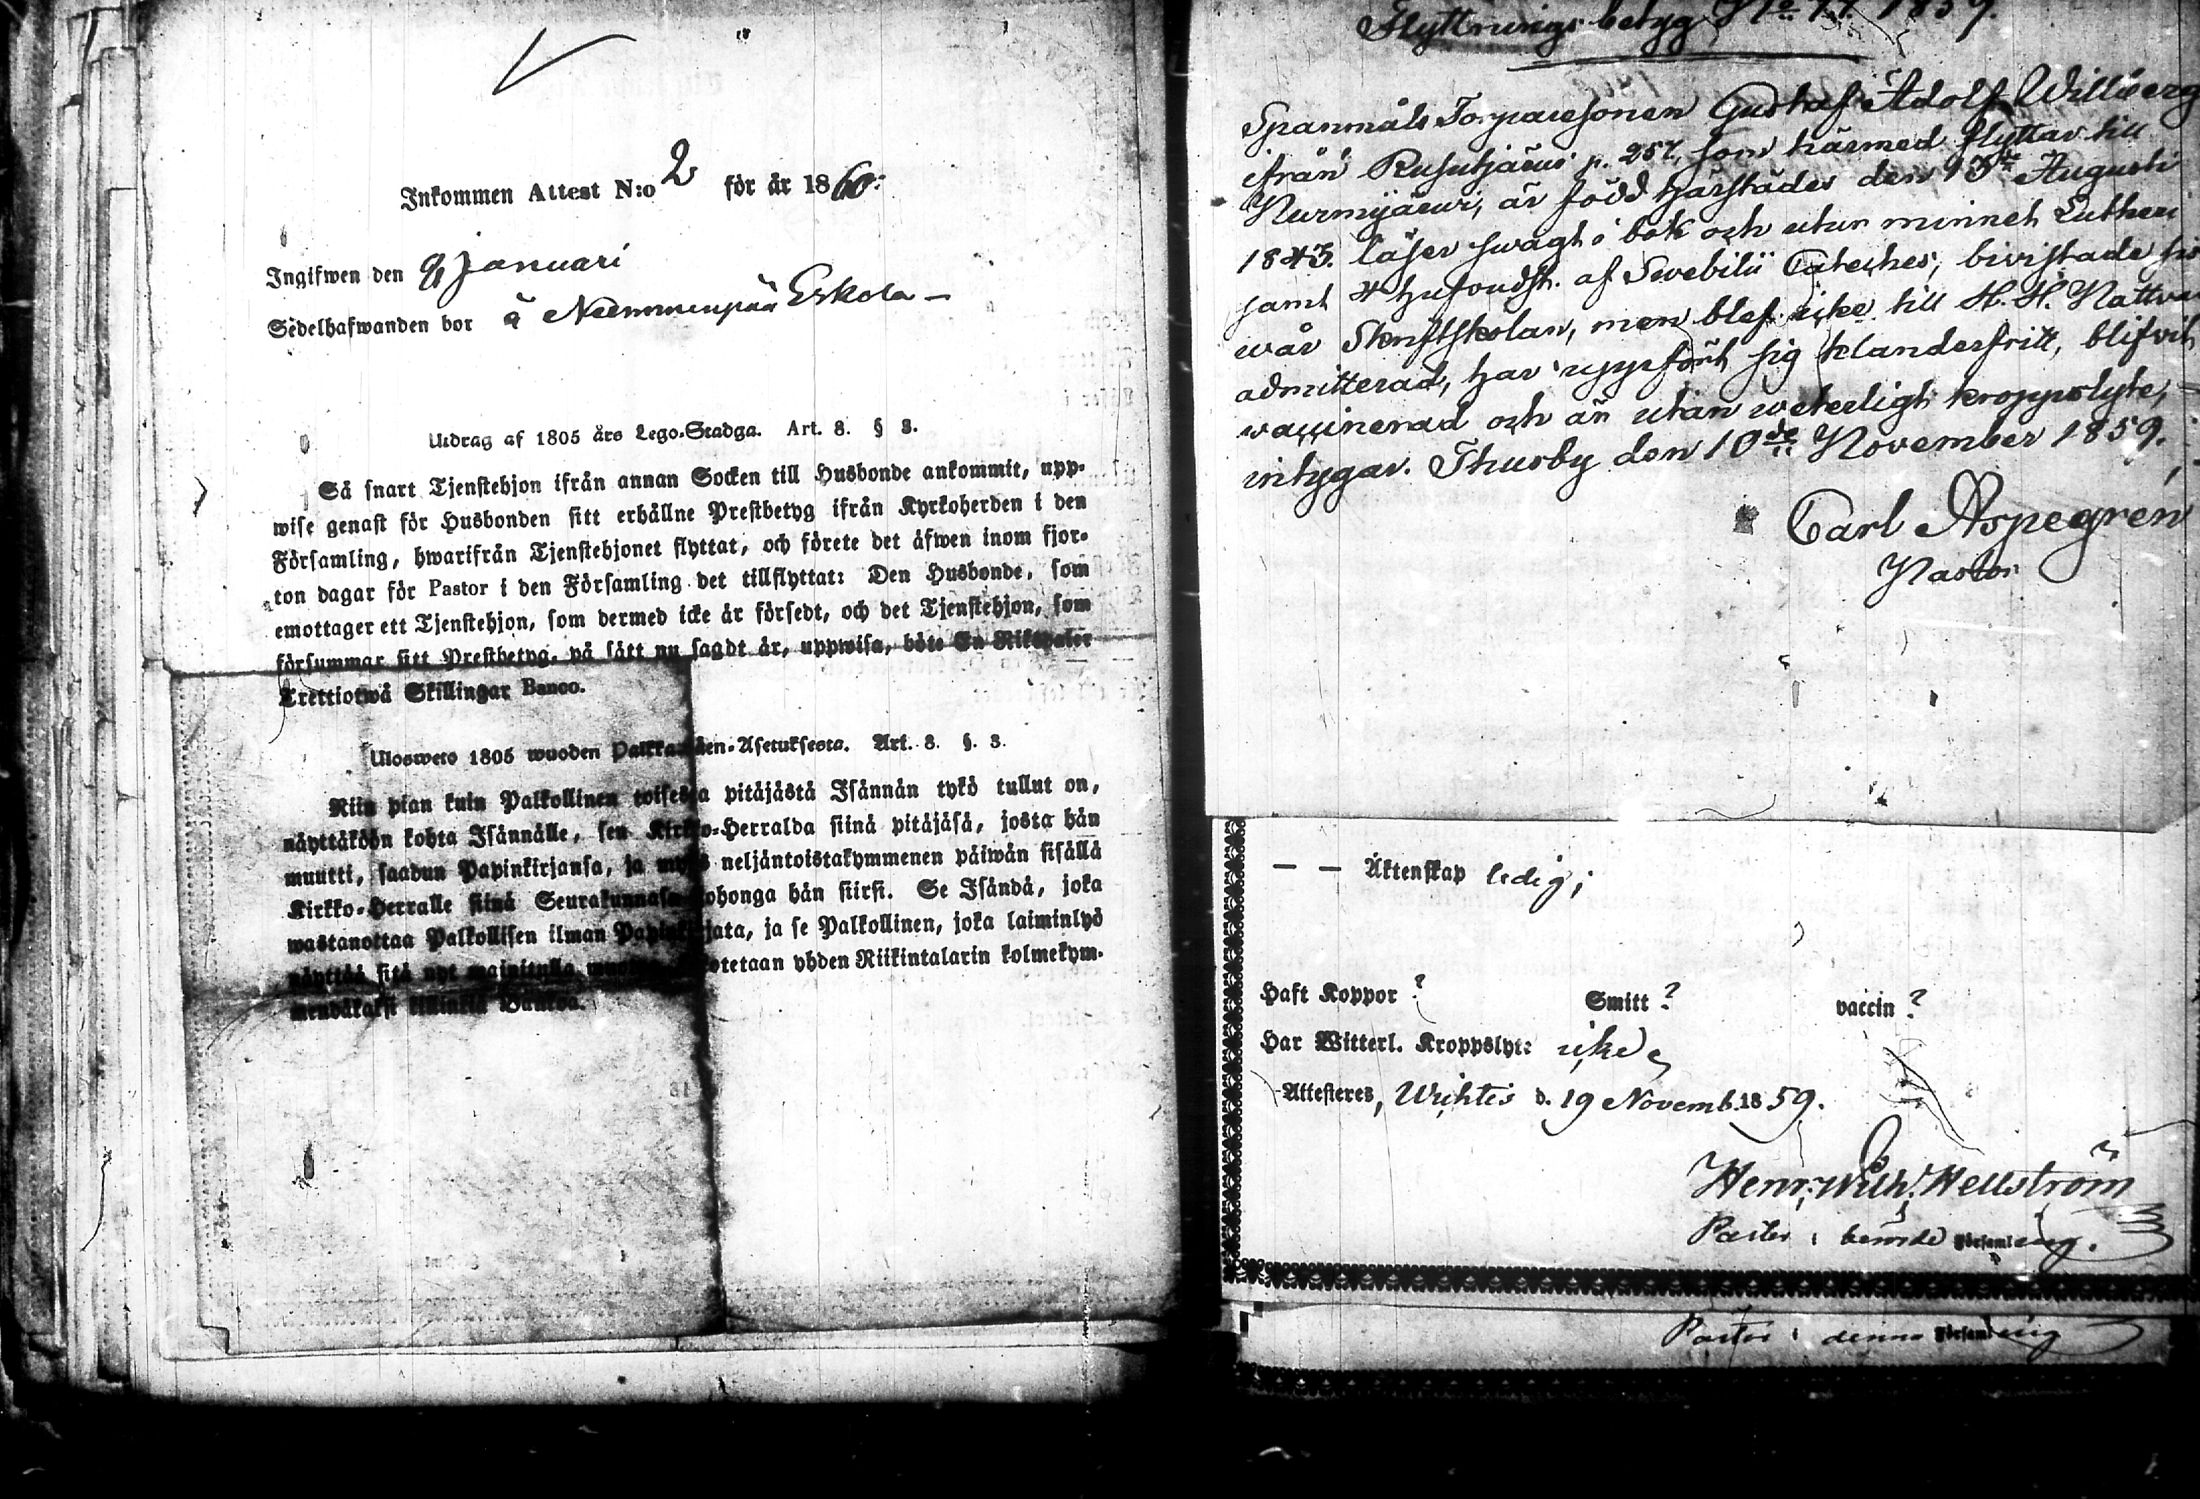 Inkommen Attest N:o 2 för år 1860.
Ingifwen den 9 januari
Sedelhafwanden bor å Niemmenpää Eskola –
Utdrag af 1805 års Lego-Stadga. Art. 8. § 3.
Så snart Tjenstehjon ifrån annan Socken till Husbonde ankommit, upp-
wise genast för Husbonden sitt erhållne Prestbetyg ifrån Kyrkoherden i den
Församling, hwarifrån Tjenstehjonet flyttat, och förete det äfwen inom fjor-
ton dagar för Pastor i den Församling det tillflyttat: Den Husbonde, som
emottager ett Tjenstehjon, som dermed icke är försedt, och det Tjenstehjon, som
försummar sitt Prestbetyg, på sätt nu sagdt är, uppwisa, böte En Riksdaler
Trettiotwå Skillingar Banco.
Uloswets 1805 wuoden Palkkaisten-Asetuksesta. Art. 8. §. 3.
Niin pian kuin Palkollinen toisesta pitäjästä Isännän tykö tullut on,
näyttäköön kohta Isännälle, sen Kirkko-Herralda siinä pitäjäsä, josta hän
muutti, saadun Papinkirjansa, ja myös neljäntoistakymmenen päiwän sisällä
Kirkko-Herralle siinä Seurakunnasa kohonga hän siirsi. Se Isändä, joka
wastanottaa Palkollisen ilman Papinkirjata, ja se Palkollinen, joka laiminlyö
näyttää sitä nyt mainitulla otetaan yhden Riikintalarin kolmekym-
mendäkaksi killinkiä Bankoa.
Flyttningsbetyg No 77. 1859.
Spanmåls Torparesonen Gustaf Adolf Willberg
ifrån Rusutjärwi p. 257, som härmed flyttar till
Nurmijärwi, är född härstädes den 13de Augusti
1843. läser swagt i bok och utur minnet Lutheri
samt 4 hufvudst. af Swebilii Cateches, bivistade
wår Skriftskolan, men blef icke till H. H. Nattva
admitterad, har uppfört sig klanderfritt, blifvit
vaccinerad och är utan weterligt kroppslyte,
intygar. Thusby den 10de November 1859.
Carl Aspegrén
Pastor
— — Äktenskap ledig;
Haft Koppor ? Smitt ? vaccin ?
Har Witterl. Kroppslyt: icke
Attesteres, Wichtis d. 19 Novemb. 1859.
Henr. Wilh. Hellström
Pastor i bemde Församling.
Pastor i denna Församling